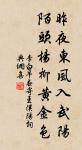 昨夜東風入武陽
陌頭楊柳黃金色
李白早春寄王漢陽詩
典網集